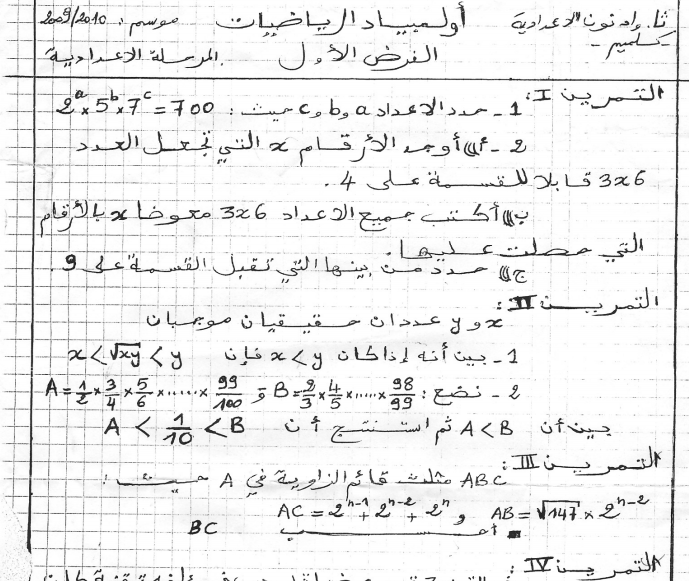 ثا. واد نون الاعدادية أولمبياد الرياضيات موسم: 2009/2010
- كلميم - الفرض الأول المرحلة الاعدادية.
التمرين I:
1 - حدد الاعداد a و b و c حيث: 2^a × 5^b × 7^c = 700
2 - أ) أوجد الأرقام x التي تجعل العدد
3x6 قابلا للقسمة على 4.
ب) أكتب جميع الاعداد 3x6 معوضا x بالأرقام
التي حصلت عليها.
ج) حدد من بينها التي تقبل القسمة على 9.
التمرين II:
x و y عددان حقيقيان موجبان
1 - بين أنه إذا كان x < y فإن x < √xy < y
2 - نضع: B = 2/3 × 4/5 × ...... × 98/99 و A = 1/2 × 3/4 × 5/6 × ...... × 99/100
بين أن A < B ثم استنتج أن A < 1/10 < B
التمرين III:
ABC مثلث قائم الزاوية في A حيث:
AB = √147 × 2^(n-2) و AC = 2^(n-1) + 2^(n-2) + 2^n
أحسب BC
التمرين IV: